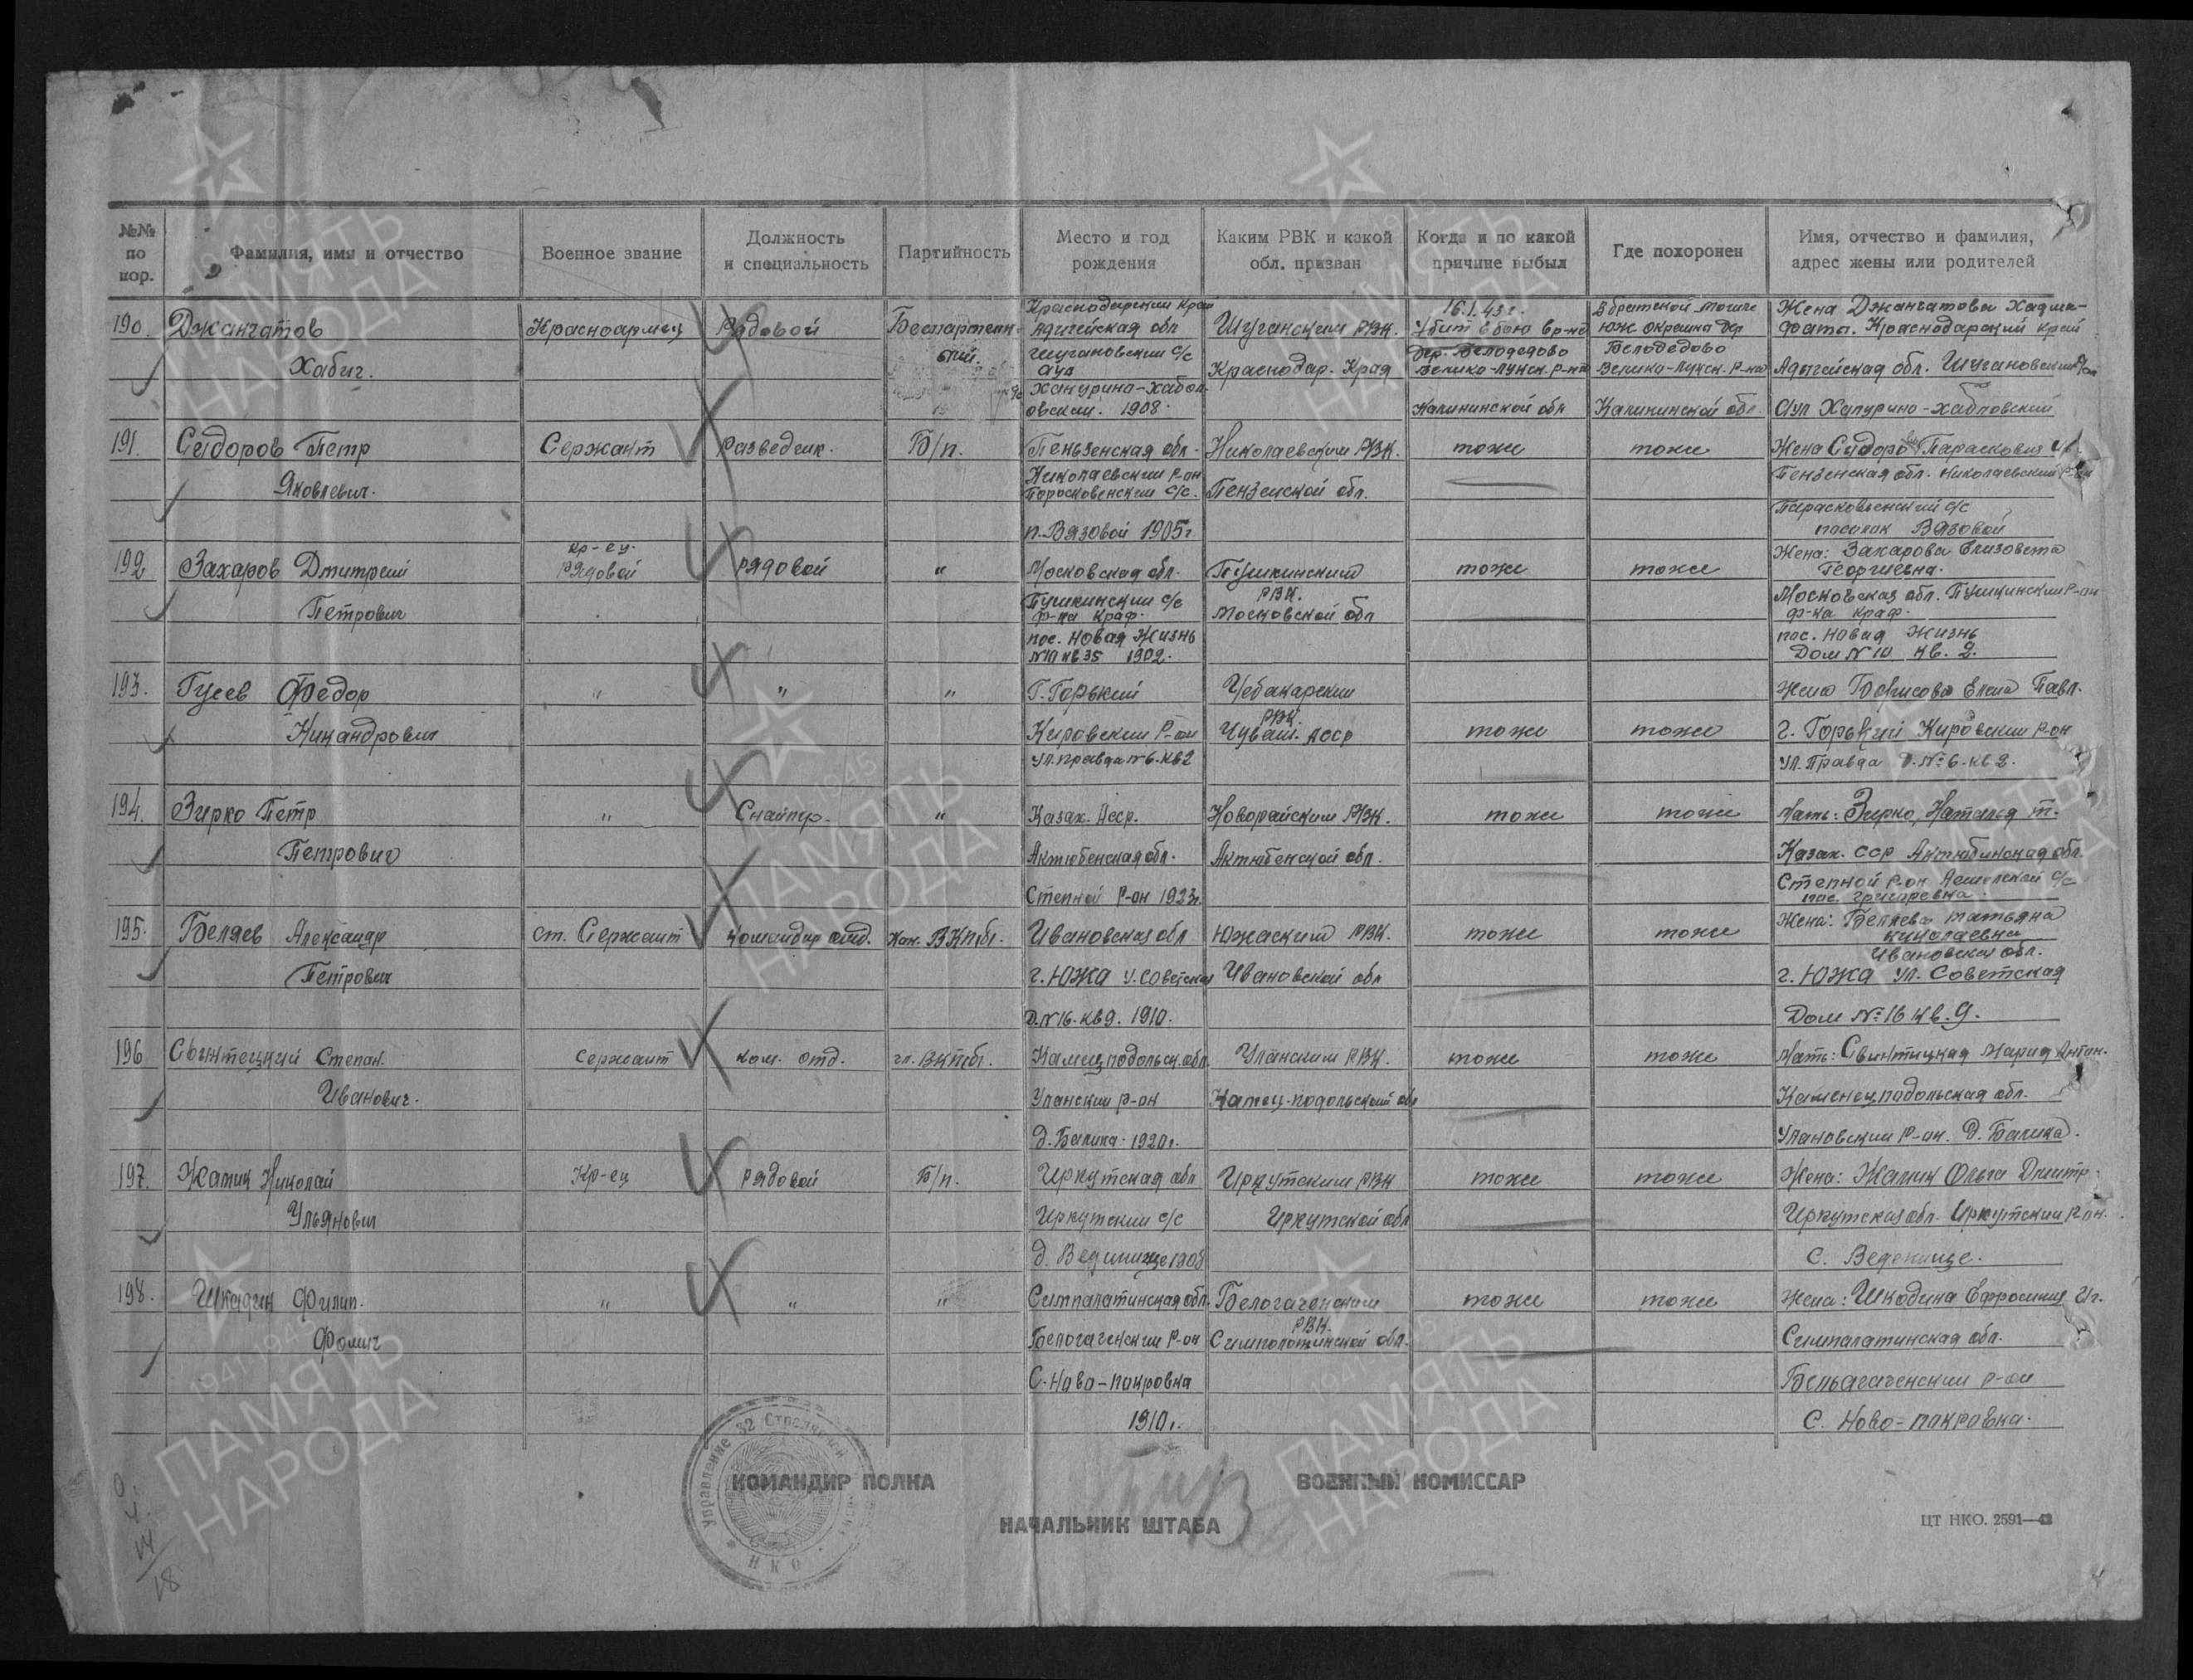 №№ по пор.
Фамилия, имя и отчество
Военное звание
Должность и специальность
Партийность
Место и год рождения
Каким РВК и какой обл. призван
Когда и по какой причине выбыл
Где похоронен
Имя, отчество и фамилия, адрес жены или родителей
190. Джанчатов Хабиг.
Красноармеец
Рядовой
Беспартейн-
ный.
Краснодарский край
Адыгейская обл
аул
1908.
РВК.
Краснодар. Край
16.1.43 г.
Убит в бою в р-не
дер. Белодедово
Велико-лукск. р-на
Калининской обл
В братской могиле
юж окраина дер
Белодедово
Велико-лукск. р-на
Калининской обл
Жена Джанчатова
Краснодарский край
Адыгейская обл.
Аул
191. Сидоров Петр Яковлевич.
Сержант
Разведчик.
Б/п.
Пензенская обл.
Николаевский р-он
с/с.
п. Вязовой 1905 г
Николаевским РВК.
Пензенской обл.
тоже
тоже
Жена Парасковия
Пензенская обл. Николаевский р-он
Парасковьенский с/с
Вязовой
192 Захаров Дмитрий Петрович
кр-ец.
Рядовой
Рядовой
"
Московская обл.
Пушкинский с/с
ф-ка Краф.
пос. Новая Жизнь
№10 кв 35 1902.
Пушкинским
РВК.
Московской обл
тоже
тоже
Жена: Захарова Елизовета
Георгиевна.
Московская обл. Пушкинский р-он
ф-ка Краф.
пос. Новая Жизнь
Дом №10 кв. 2.
193. Гусев Федор Никандрович
"
"
"
Г. Горький
Кировский р-он
ул. Правда №6. кв 2
РВК.
Чуваш. АССР
тоже
тоже
Жена Елена Павл.
г. Горький Кировский р-он
ул. Правда д. №6. кв 2.
194. Зирко Петр Петрович
"
Снайпер.
"
Казах. Асср.
Актюбенская обл.
Степной р-он 1923 г.
РВК.
Актюбенской обл.
тоже
тоже
Мать: Зирко, Наталья Т.
Казах. ССР Актюбинская обл.
Степной р-он с/с
195. Беляев Александр Петрович
ст. Сержант
Командир отд.
Кан. ВКПбг.
Ивановская обл
г. Южа у. Советская
д. №16. кв 9. 1910.
Южским РВК.
Ивановской обл
тоже
тоже
Жена: Беляева татьяна
николаевна
Ивановская обл.
г. Южа ул. Советская
Дом №16 кв. 9.
196 Степан. Иванович.
Сержант
ком. отд.
чл. ВКПбг.
Камец подольск. обл.
Уланский р-он
д. Балика. 1920 г.
Уланским РВК.
Камец-подольской обл
тоже
тоже
Мать: Свинтицкая Мария Антон.
Каменец подольская обл.
Улановский р-он. д. Балика.
197. Жалик Николай Ульянович
Кр-ец
Рядовой
Б/п.
Иркутская обл
Иркутский с/с
д. 1908
Иркутским РВК
Иркутской обл
тоже
тоже
Жена: Жалик Ольга Дмитр.
Иркутская обл. Иркутский р-он.
с. Веденище.
198. Шкадин Филип. Фомич
"
"
"
Симпалатинская обл.
р-он
С. Ново-покровка
1910 г.
РВК.
обл.
тоже
тоже
Жена: Шкодина Ефросиния Иг.
Симпалатинская обл.
Бельагаченский р-он
С. Ново-покровка.
Управление 32 Стрелковой
НКО
КОМАНДИР ПОЛКА
ВОЕННЫЙ КОМИССАР
НАЧАЛЬНИК ШТАБА
ЦТ НКО. 2591—42
1941 1945
ПАМЯТЬ
НАРОДА